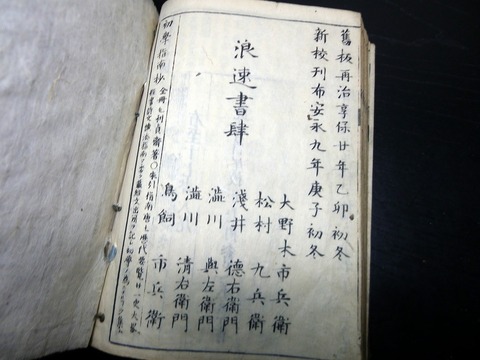 舊板再治享保廿年乙卯初冬
新校刊布安永九年庚子初冬
浪速書肆
大野木市兵衛
松村九兵衛
淺井德右衛門
澁川與左衛門
澁川清右衛門
鳥飼市兵衛
初學指南抄 全冊 毛利貞齋著